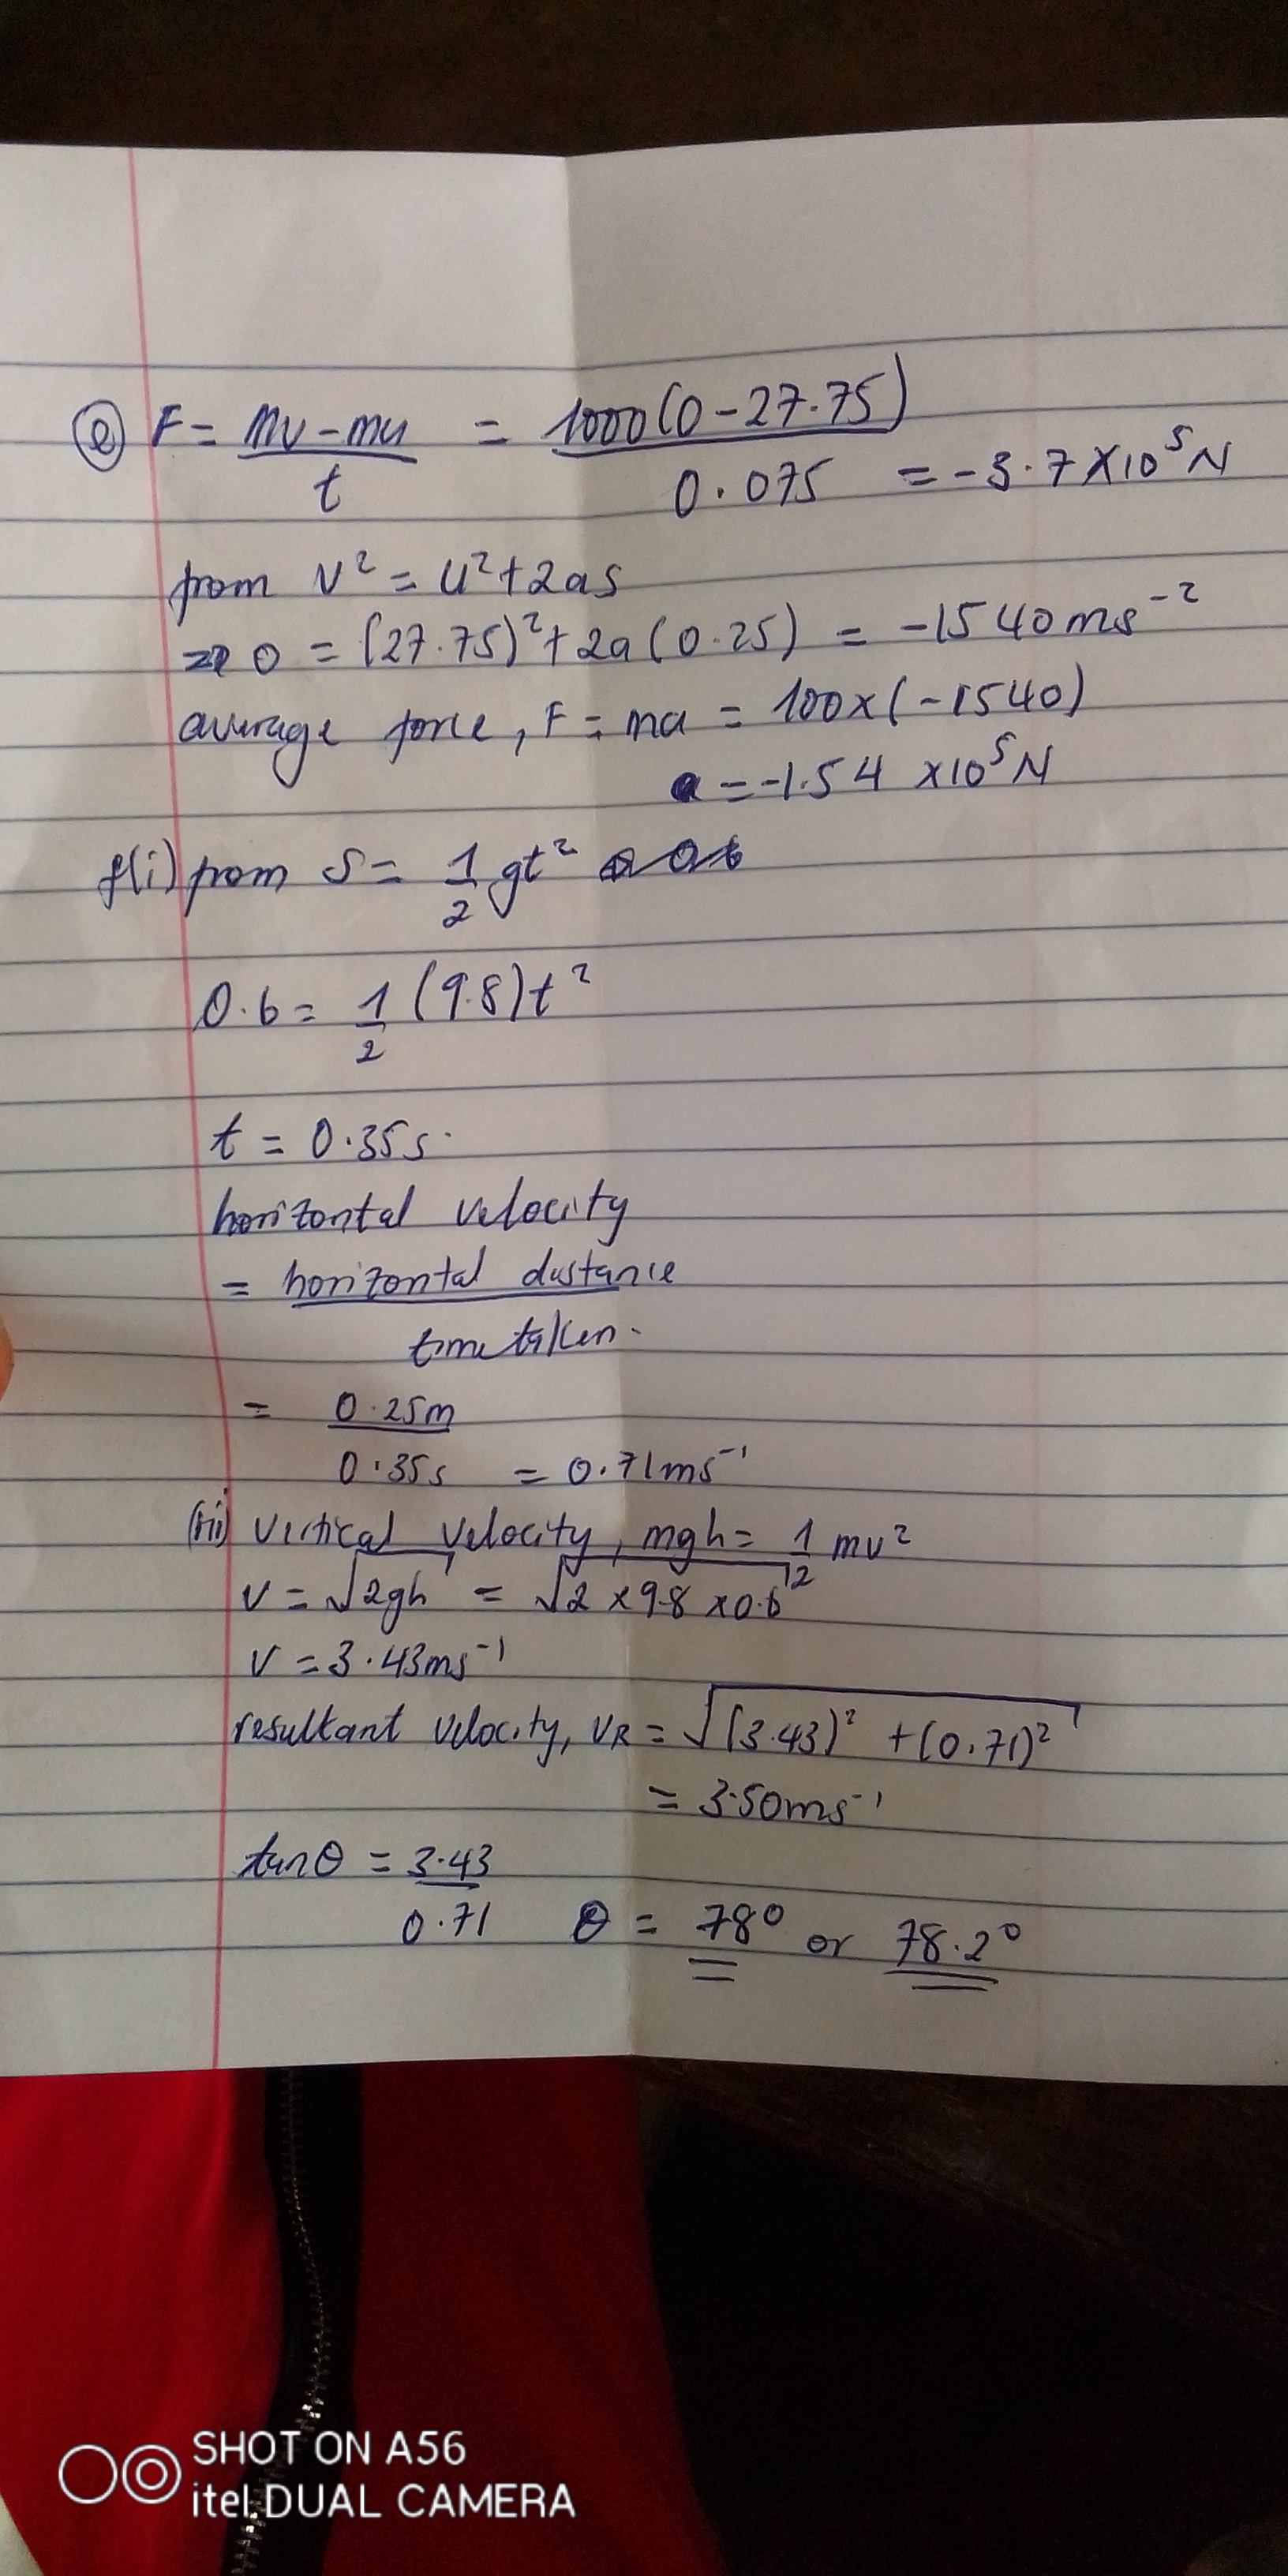 (e) F = mv - mu / t = 1000(0 - 27.75) / 0.075 = -3.7 × 10⁵ N
from v² = u² + 2as
⇒ 0 = (27.75)² + 2a(0.25) = -1540 ms⁻²
average force, F = ma = 100 × (-1540)
= -1.54 × 10⁵ N
f(i) from S = 1/2 gt²
0.6 = 1/2 (9.8)t²
t = 0.35s.
horizontal velocity
= horizontal distance
time taken.
= 0.25m
0.35s = 0.71ms⁻¹
(ii) vertical velocity, mgh = 1/2 mv²
v = √2gh = √2 × 9.8 × 0.6
v = 3.43ms⁻¹
resultant velocity, VR = √(3.43)² + (0.71)²
= 3.50ms⁻¹
tanθ = 3.43
0.71 θ = 78° or 78.2°
SHOT ON A56
itel DUAL CAMERA